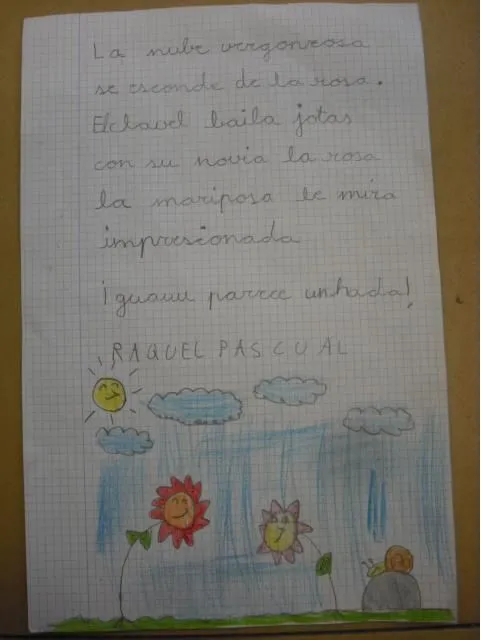 La nube vergonzosa
se esconde de la rosa.
El clavel baila jotas
con su novia la rosa
la mariposa le mira
impresionada
¡guauu parece un hada!
RAQUEL PASCUAL